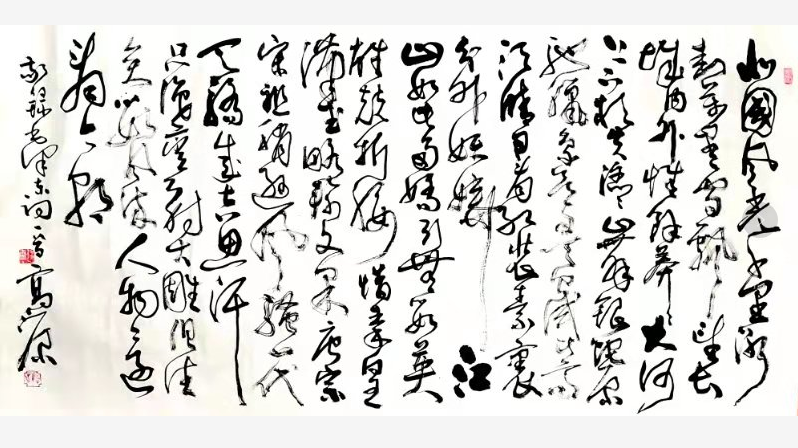 北國風光千里冰
封萬里雪飄望長
城內外惟餘莽莽大河
上下頓失滔滔山舞銀蛇原
馳蠟象欲與天公試比高
須晴日看紅裝素裹
分外妖嬈江
山如此多嬌引無數英
雄競折腰惜秦皇
漢武略輸文采唐宗
宋祖稍遜風騷一代
天驕成吉思汗
只識彎弓射大雕俱往
矣數風流人物還
看今朝
敬錄毛澤東詞